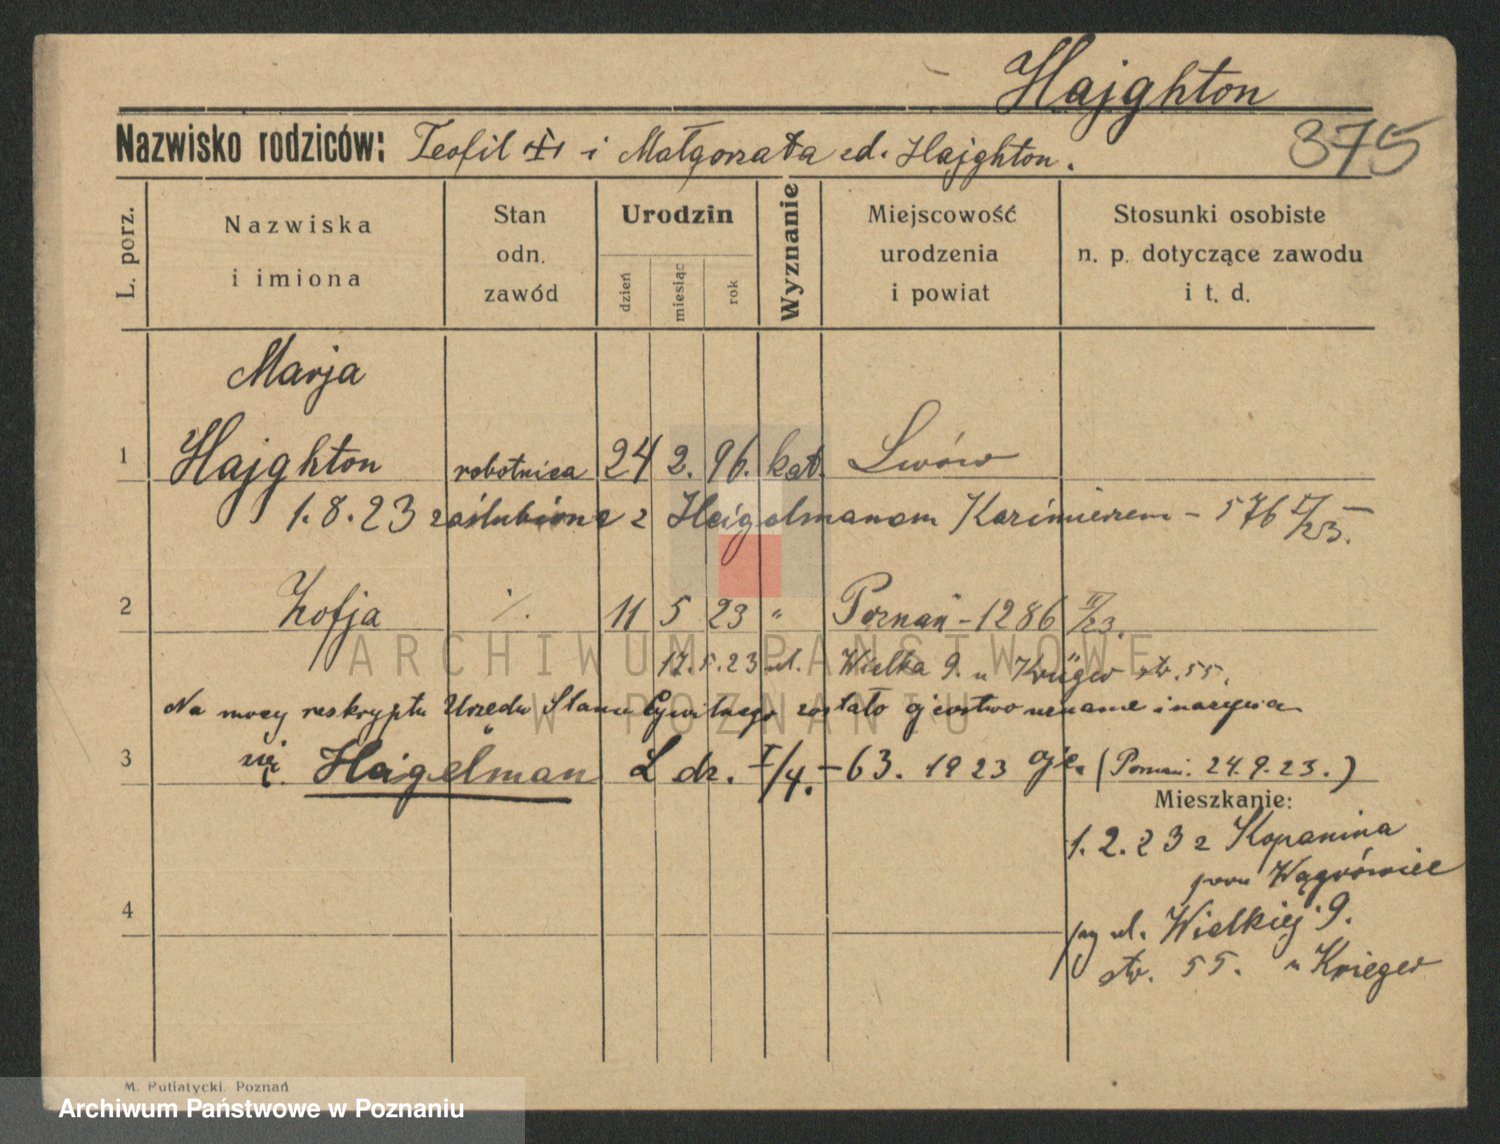 Hajghton
375
Nazwisko rodziców: Teofil i Małgorzata zd. Hajghton.
L. porz.
Nazwiska
i imiona
Stan
odn.
zawód
Urodzin
dzień
miesiąc
rok
Wyznanie
Miejscowość
urodzenia
i powiat
Stosunki osobiste
n. p. dotyczące zawodu
i t. d.
Marja
1 Hajghton robotnica 24 2. 96. kat. Lwów
1.8.23 zaślubiona z Heigelmanem Kazimierzem - 576 I/23.
2 Zofja ./. 11 5 23 " Poznań - 1286 II/23.
17.5.23 ul. Wielka 9. u Krüger str. 55.
Na mocy reskryptu Urzędu Stanu Cywilnego zostało ojcostwo uznane i nazywa
3 się Heigelman L. dz. I/4. - 63. 1923 (Poznań. 24.9.23.)
Mieszkanie:
1.2.23 z Kopanina
pow Wągrówiec
4
ul. Wielkiej 9.
str. 55. u Krieger
M. Putiatycki. Poznań
ARCHIWUM PAŃSTWOWE
W POZNANIU
Archiwum Państwowe w Poznaniu